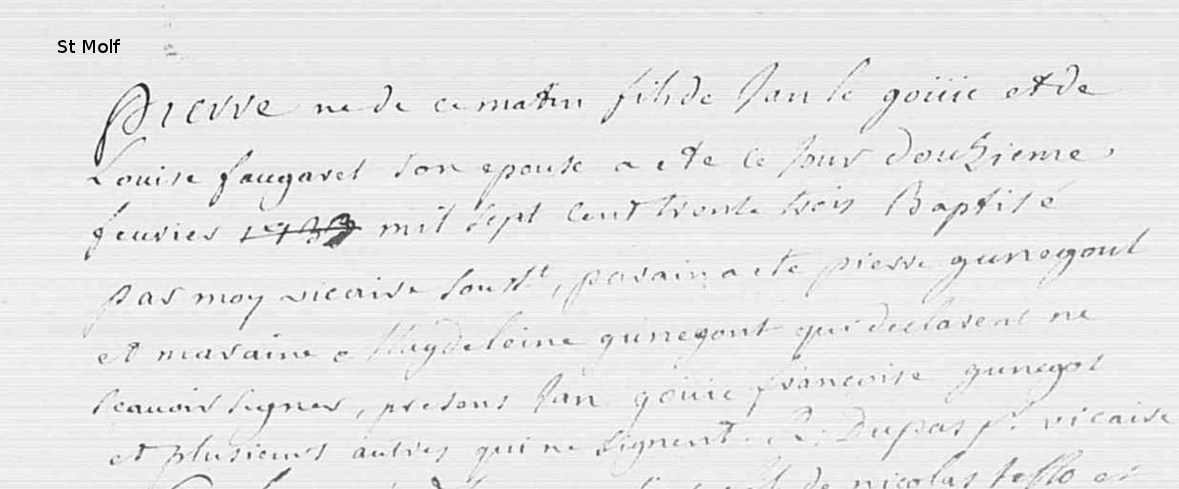 St Molf
Pierre ne de ce matin fils de Jan le goüic et de
Louise faugaret son epouse a ete ce jour douzieme
feuvrier 1733 mil sept cent trente trois Baptisé
par moy vicaire sousst, parain a ete pierre gunegout
et maraine a Magdeleine gunegout qui declarent ne
scauoir signer, presens Jan goüic francoise gunegot
et plusieurs autres qui ne signent. R: Dupas p. vicaire
de nicolas